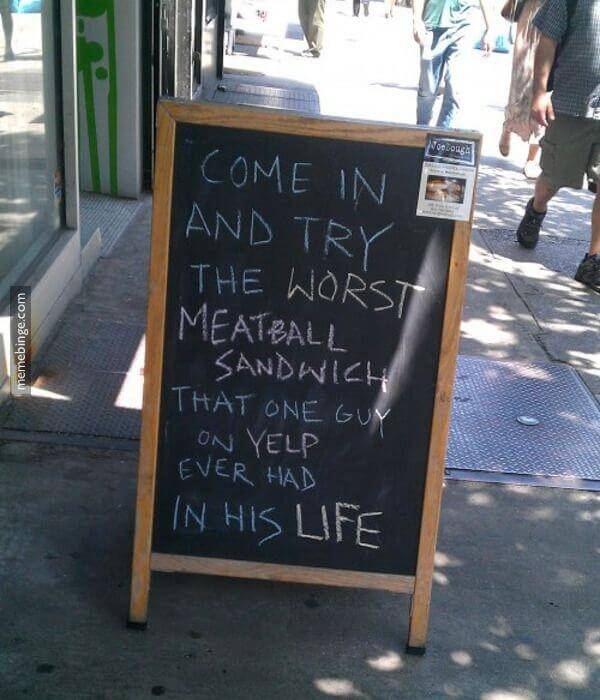 COME IN
AND TRY
THE WORST
MEATBALL
SANDWICH
THAT ONE GUY
ON YELP
EVER HAD
IN HIS LIFE
JoeDough
memebinge.com